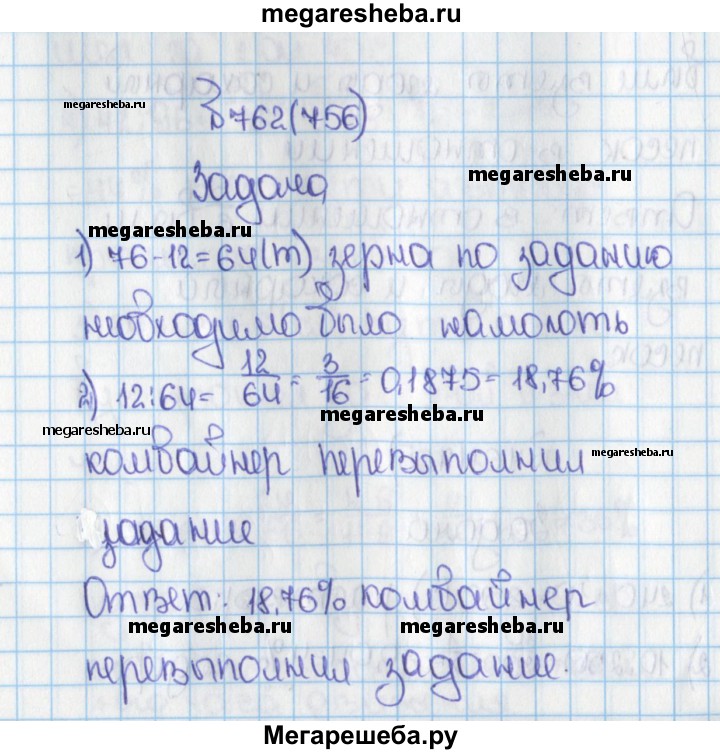 megaresheba.ru
megaresheba.ru
№762(756)
Задача
megaresheba.ru
megaresheba.ru
1) 76-12=64(т) зерна по заданию
необходимо было намолоть
2) 12:64= 12/64 = 3/16 = 0,1875 = 18,76%
megaresheba.ru
megaresheba.ru
комбайнер перевыполнил
megaresheba.ru
задание
Ответ: 18,76% комбайнер
megaresheba.ru
megaresheba.ru
перевыполнил задание.
Мегарешеба.ру